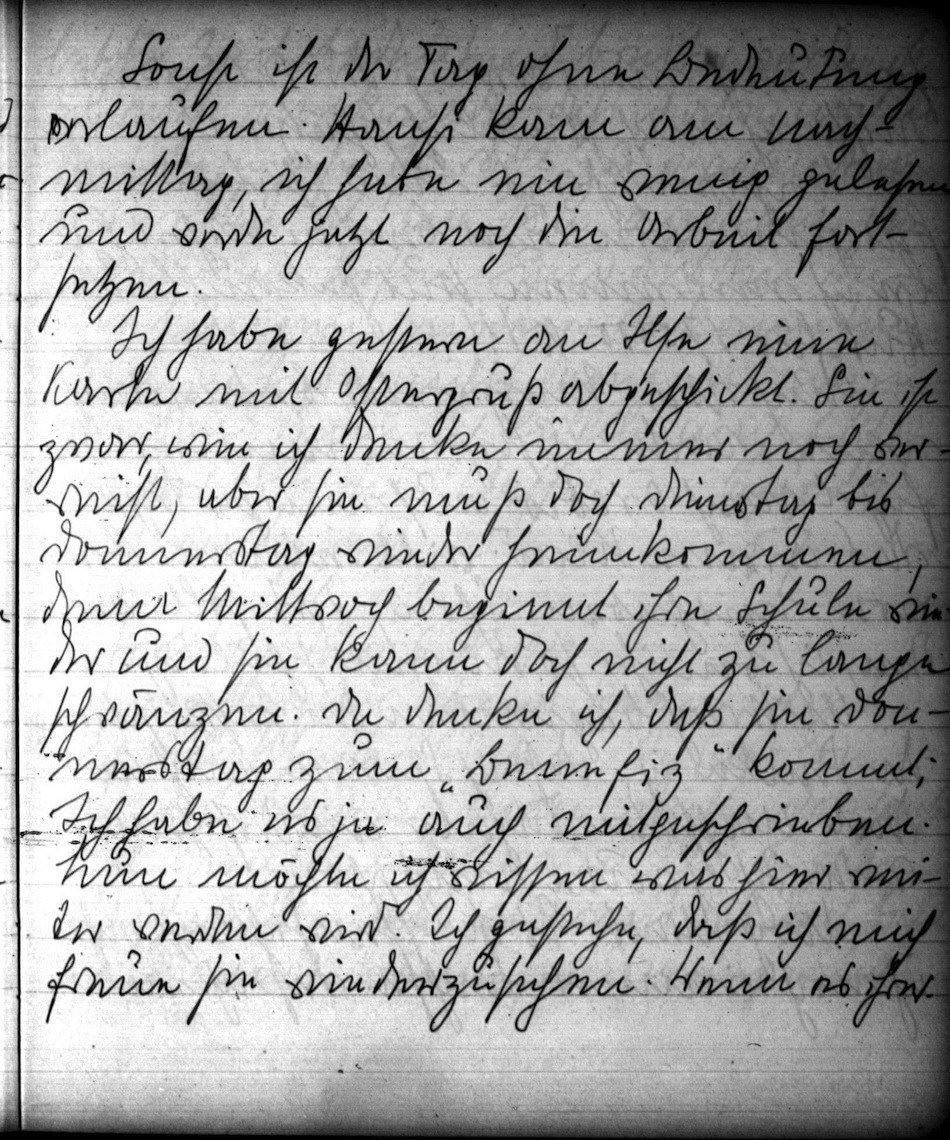 Sonst ist der Tag ohne Bedeutung
verlaufen. Hansi kam am Nach-
mittag, ich habe ein wenig gelesen
und werde jetzt noch die Arbeit fort-
setzen.
Ich habe gestern an Ilse eine
Karte mit Ostergruß abgeschickt. Sie ist
zwar, wie ich denke immer noch ver-
reist, aber sie muß doch Dienstag bis
Donnerstag wieder heimkommen,
denn Mittwoch beginnt ihre Schule wie
der und sie kann doch nicht zu lange
schwänzen. Da denke ich, daß sie Don-
nerstag zum „Benefiz" kommt;
Ich habe es ja auch mitgeschrieben.
Nun möchte ich wissen was hier wei-
ter werden wird. Ich gestehe, daß ich mich
freue sie wiederzusehen. Wenn es ihrer-